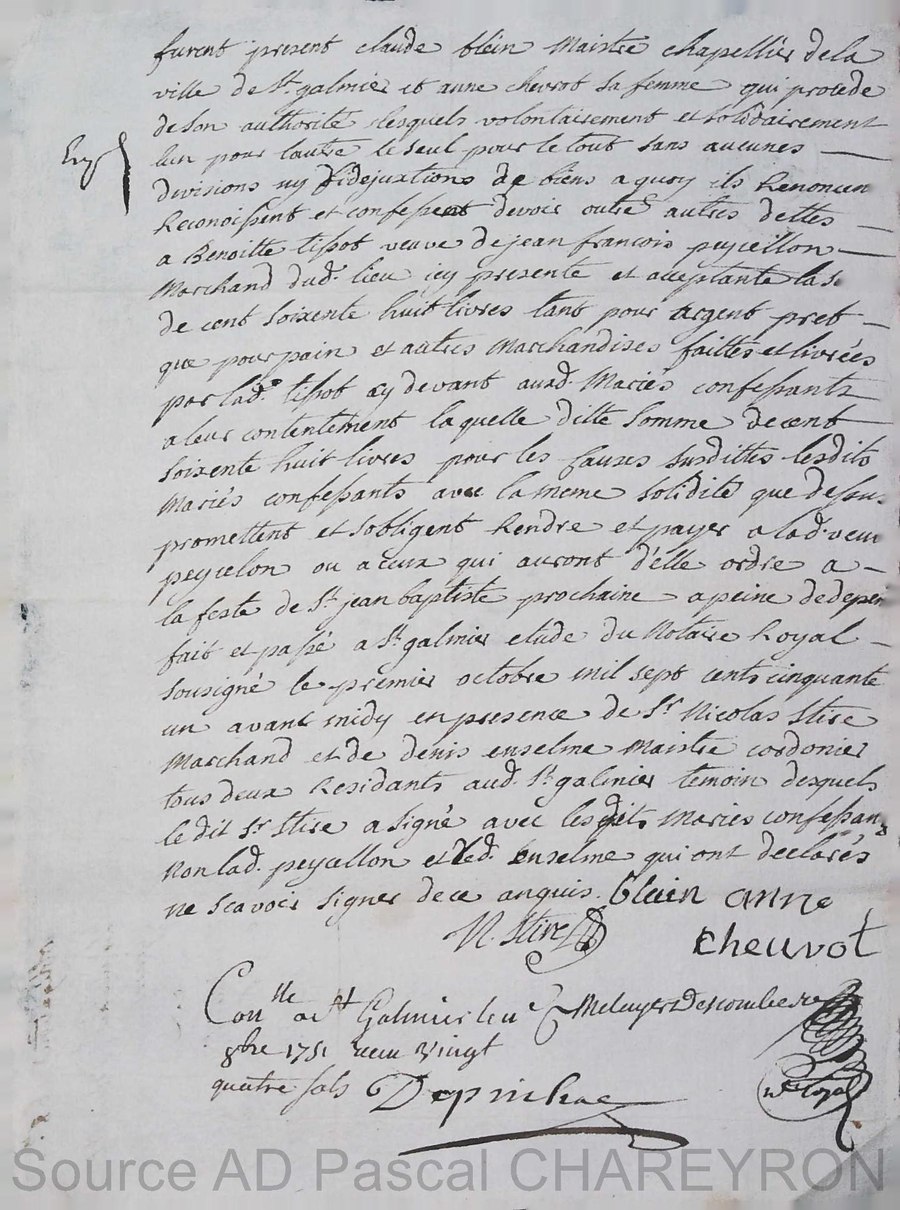 furent present claude blein Maistre chapellier de la
ville de St. galmier et anne chevrot sa femme qui procede
de son authorité lesquels volontairement et solidairement
lun pour lautre le seul pour le tout sans aucunes
divisions ny fidejuxtions de biens a quoy ils Renoncen
Reconoissent et confessent devoir outre autres dettes
a Benoitte tissot veuve de jean francois peycellon
Marchand dud. lieu icy presente et aceptante la se
de cent soixente huit livres tant pour argent pret
que pour pain et autres Marchandises faittes et livrées
par lad. tissot cy devant auxd. Mariés confessants
a leur contentement laquelle ditte somme de cent
soixente huit livres pour les Causes susdittes lesdits
Mariés confessants avec la meme solidité que dessus
promettent et sobligent Rendre et payer a lad. veuv
peycelon ou a ceux qui auront d'elle ordre a
la feste de St. jean baptiste prochaine a peine de depen
fait et passé a St. galmier etude du Notaire Royal
sousigné le premier octobre mil sept cents cinquante
un avant midy en presence de Sr. Nicolas Stire
Marchand et de denis enselme Maistre cordonier
tous deux Residants aud. St. galmier temoin desquels
le dit Sr. Stire a signé avec lesdits Mariés confessans
Non lad. peycellon et led. Enselme qui ont declarés
ne scavoir signer de ce anquis. blein anne
N. Stire cheuvot
Conlle a St Galmier le
8bre 1751 receu Vingt
quatre sols
nre Royal
Source AD Pascal CHAREYRON